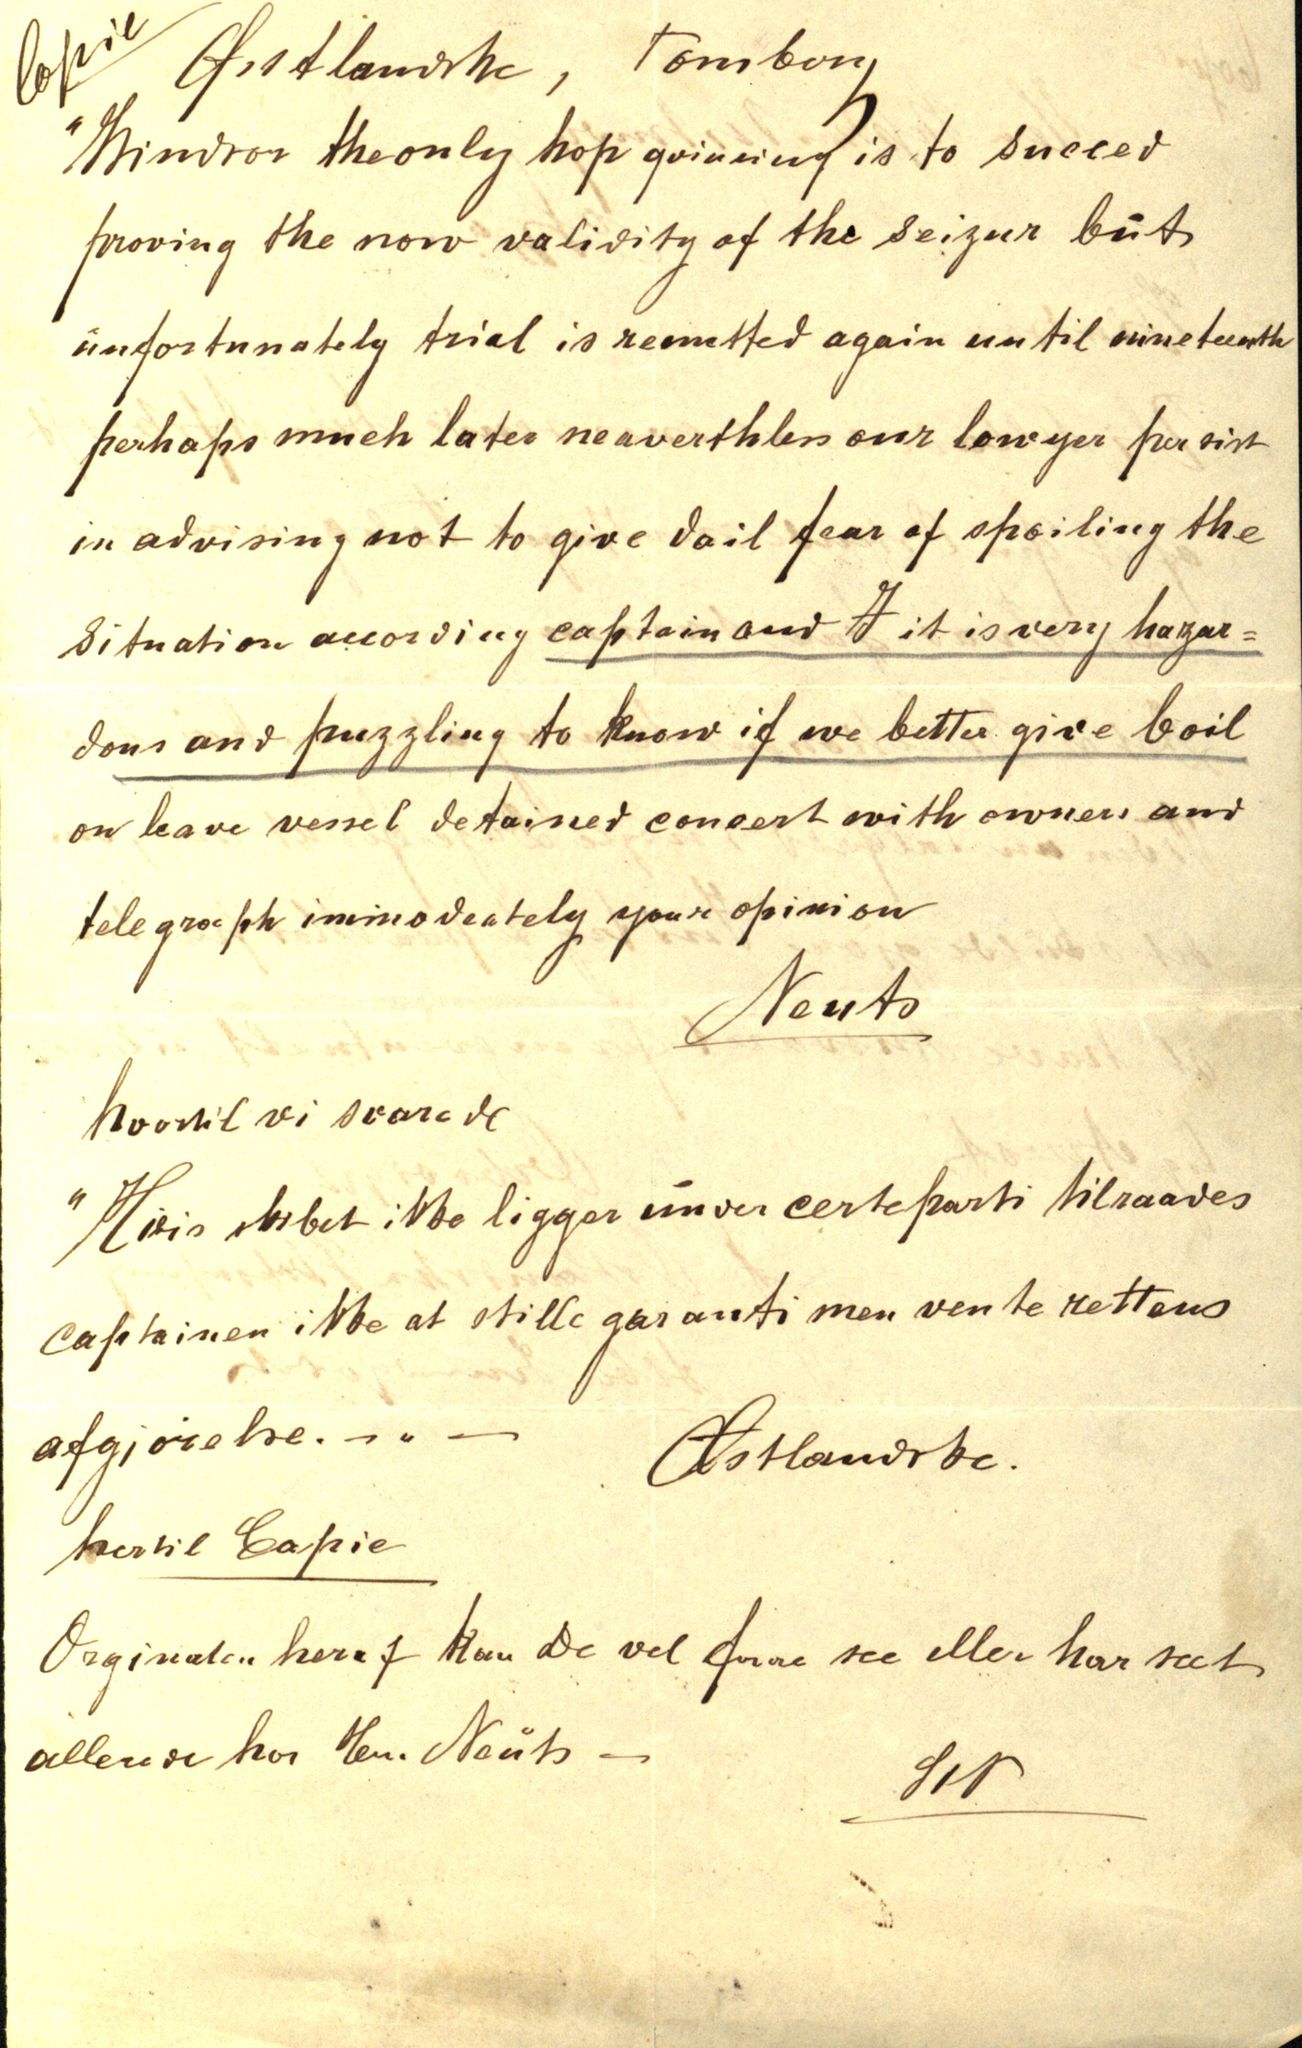 Copie
Østlandske, Tønsberg
"Windsor the only hop gvinning is to succed
proving the now validity of the seizur but
unfortunately trial is remetted again until nineteenth
perhaps much later neaverthless our lowyer persist
in advising not to give dail fear of spoiling the
situation according captain and I it is very hazar=
dous and puzzling to know if we better give boil
or leave vessel detained concert with owners and
telegraph immodeately your opinion
Neuts
hvortil vi svarede
"Hvis skibet ikke ligger under certeparti tilraades
captainen ikke at stille garanti men vente rettens
afgjörelse. — " —
Østlandske.
hertil Copie
Orginalen heraf kan De vel faae see eller har seet
allerede hos Herr Neüts —